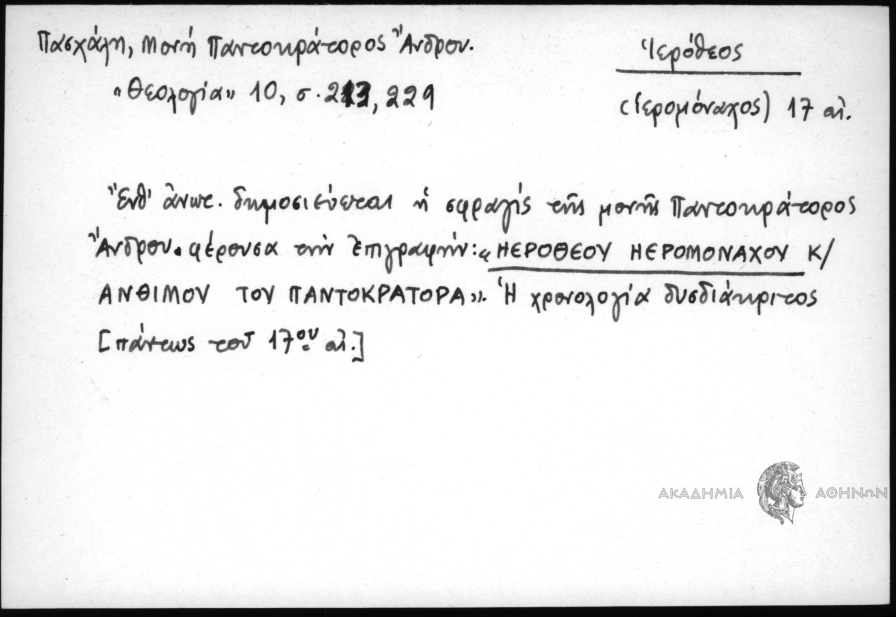 Πασχάλη, Μονή Παντοκράτορος Ἄνδρου.
«Θεολογία» 10, σ. 213, 229
Ἱερόθεος
(ἱερομόναχος) 17 αἰ.
Ἔνθ' ἄνωτ. δημοσιεύεται ἡ σφραγίς τῆς μονῆς Παντοκράτορος
Ἄνδρου. φέρουσα τήν ἐπιγραφήν: «ΗΕΡΟΘΕΟΥ ΗΕΡΟΜΟΝΑΧΟΥ Κ/
ΑΝΘΙΜΟΥ ΤΟΥ ΠΑΝΤΟΚΡΑΤΟΡΑ». Ἡ χρονολογία δυσδιάκριτος
[πάντως τοῦ 17ου αἰ.]
ΑΚΑΔΗΜΙΑ ΑΘΗΝΩΝ